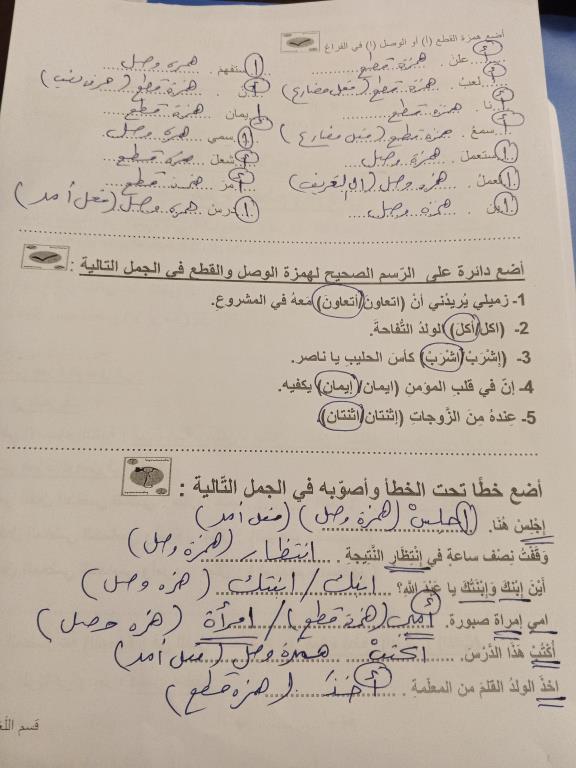 أضع همزة القطع (أ) أو الوصل (ا) في الفراغ
أ علن . همزة قطع
ا ستفهم . همزة وصل
أ لعبُ . همزة قطع (فعل مضارع)
أ نّ . همزة قطع (حرف نصب)
أ نا . همزة قطع
إ يمان . همزة قطع
أ سمعُ . همزة قطع (فعل مضارع)
ا سمي . همزة وصل
ا ستعمل . همزة وصل
أ شعل . همزة قطع
ا لعملُ . همزة وصل (ال التعريف)
أ مرَ . همزة قطع
ا بن . همزة وصل
ا درسْ . همزة وصل (فعل أمر)
أضع دائرة على الرّسم الصحيح لهمزة الوصل والقطع في الجمل التالية :
1- زميلي يُريدُني أنْ (اتعاونَ/أتعاونَ) مَعهُ في المشروعِ.
2- (اكل/أكلَ) الولدُ التُّفاحةَ.
3- (إشْرَبْ/اشْرَبْ) كأسَ الحليبِ يا ناصر.
4- إنّ في قلبِ المؤمنِ (ايمان/إيمان) يكفيه.
5- عِندهُ مِنَ الزَّوجاتِ (إثنتان/اثنتان).
أضع خطًا تحت الخطأ وأصوّبه في الجمل التّالية :
إجْلِسْ هُنَا. اجلسْ (همزة وصل) (فعل أمر)
وَقَفْتُ نِصْف ساعة في إنْتِظَارِ النَّتيجةِ . انتظار (همزة وصل)
أيْنَ إبْنكَ وَإبْنَتُكَ يا عَبْدَ اللهِ؟ ابنك / ابنتك (همزه وصل)
امي إمراة صبورة. أمي (همزة قطع) / امرأة (همزه وصل)
أُكْتُبْ هَذَا الدَّرْسَ. اكتبْ همزة وصل (فعل أمر)
اخذَ الولدُ القلمَ من المعلّمةِ . أخذَ (همزة قطع)